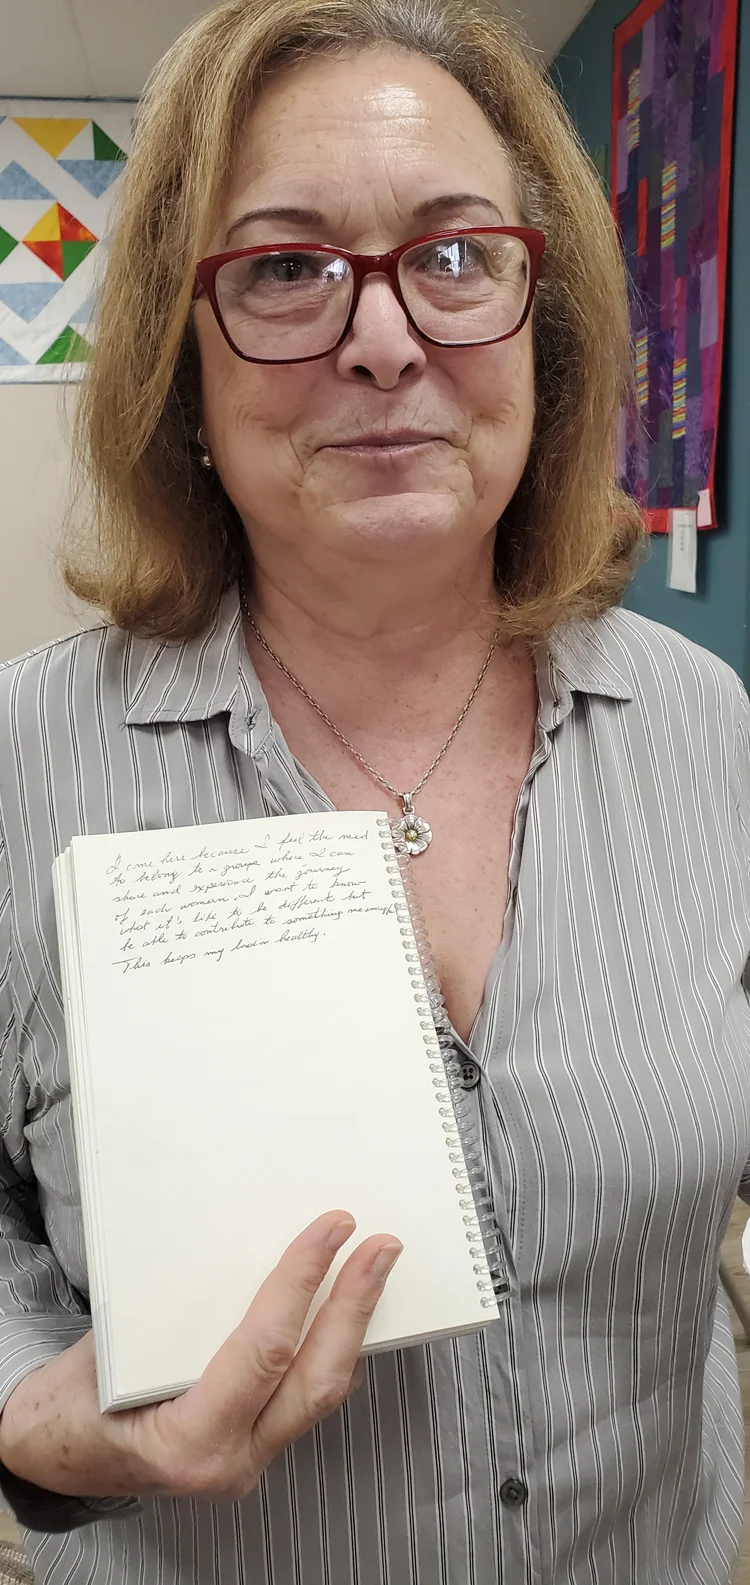 I come here because I feel the need
to belong to a group where I can
share and experience the journey
of each woman. I want to know
what it's like to be different but
be able to contribute to something meaningful.
This keeps my brain healthy.